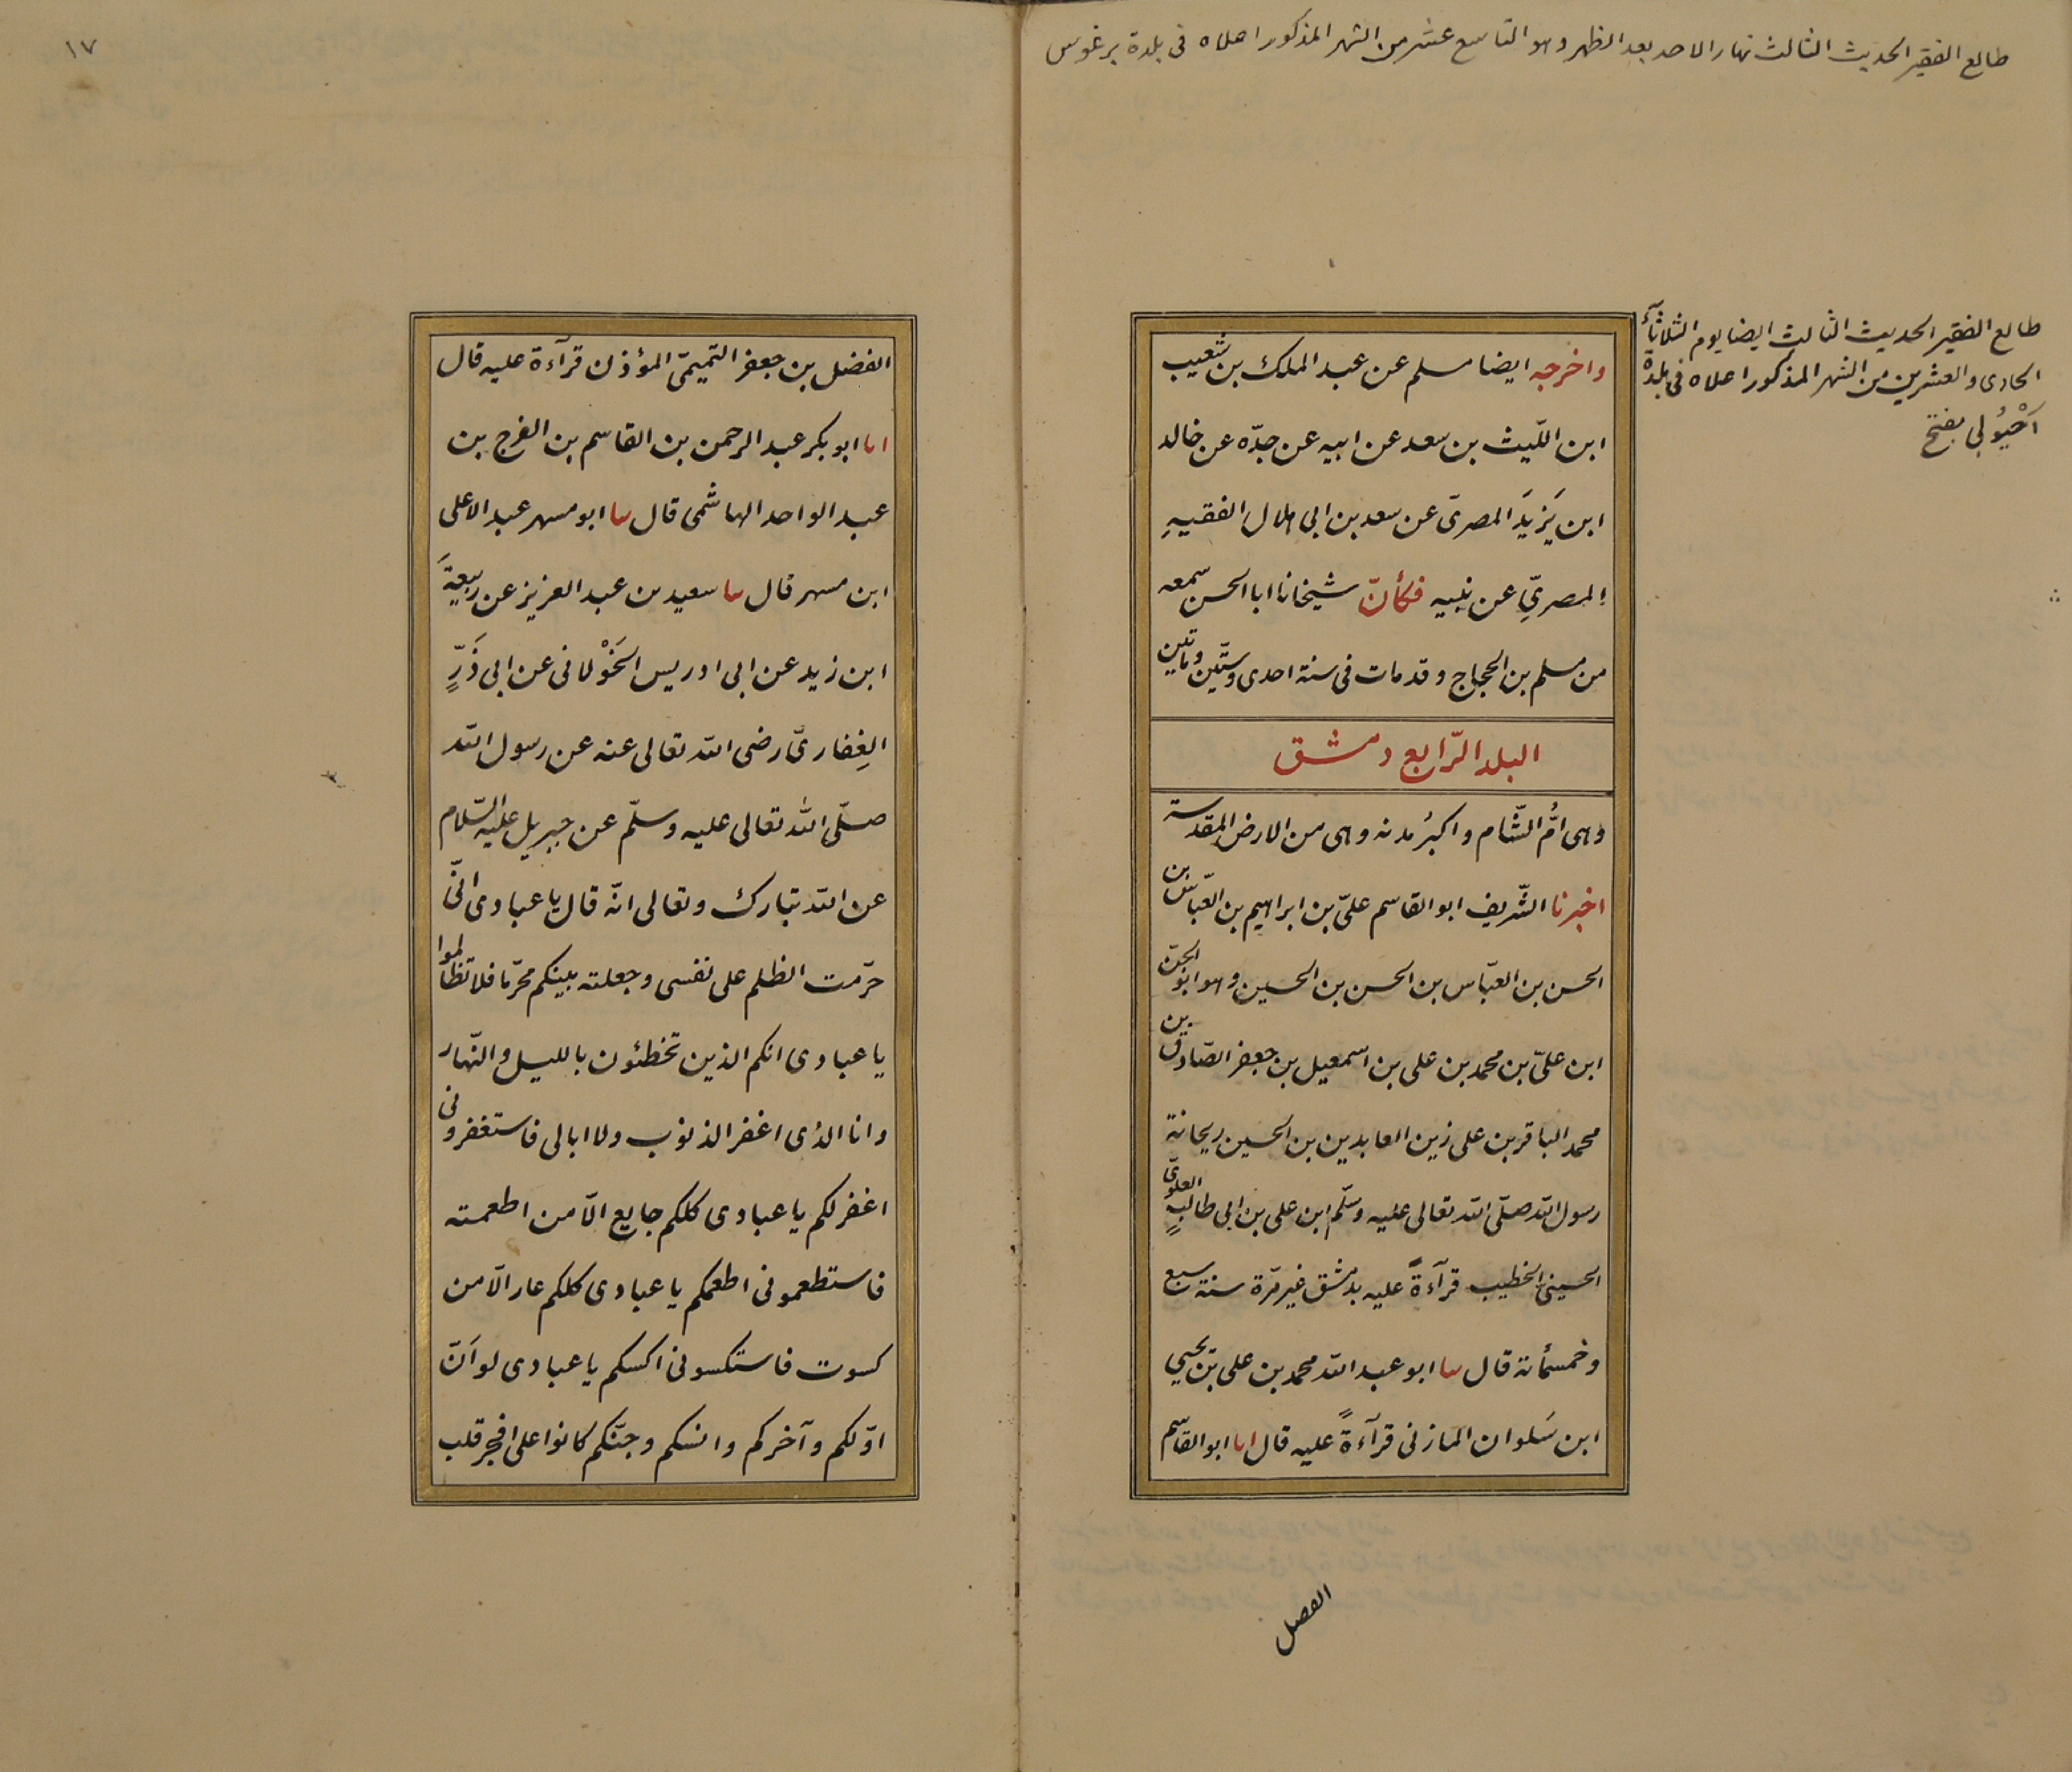 طالع الفقير الحديث الثالث نهار الاحد بعد الظهر وهو التاسع عشر من الشهر المذكور اعلاه فى بلدة برغوس
طالع الفقير الحديث الثالث ايضا يوم الثلاثآء
الحادى والعشرين من الشهر المذكور اعلاه فى بلدة
بفتح
واخرجه ايضا مسلم عن عبد الملك بن شعيب
ابن اللّيث بن سعد عن ابيه عن جدّه عن خالد
ابن يَزيدَ المصرىّ عن سعد بن ابى هلال الفقيهِ
المصرىِّ عن نبيه فكأنّ شيخانا ابا الحسن سمعه
من مسلم بن الحجاج وقد مات فى سنة احدى وستّين ومأتين
البلد الرّابع دمشق
وهى اُمّ الشّام واكبرُ مدنه وهى من الارض المقدسة
اخبرنا الشّريف ابو القاسم علىّ بن ابراهيم بن العبّاس بن
الحسن بن العبّاس بن الحسن بن الحسين وهو ابو الجنّ
ابن علىّ بن محمد بن على بن اسمعيل بن جعفر الصّادق بن
محمد الباقر بن على زين العابدين بن الحسين ريحانة
رسول الله صلّى الله تعالى عليه وسلّم ابن على بن ابى طالبٍ العلوىّ
الحسينىّ الخطيب قرآءةً عليه بدمشق غير مرّة سنة سبع
وخمسمأئة قال سا ابو عبد الله محمد بن على بن يحيى
ابن سَلوان المازنى قرآءةً عليه قال اما ابو القاسم
الفصل
١٧
الفضل بن جعفر التميمىّ المؤذن قرآءة عليه قال
اما ابو بكر عبد الرحمن بن القاسم بن الفرج بن
عبد الواحد الهاشمى قال سا ابو مسهر عبد الاعلى
ابن مسهر قال سا سعيد بن عبد العزيز عن ربيعةَ
ابن زيد عن ابى ادريس الخَوْلانى عن ابى ذَرٍّ
الغِفارىّ رضى الله تعالى عنه عن رسول الله
صلّى الله تعالى عليه وسلّم عن جبريل عليه السّلام
عن الله تبارك وتعالى انّه قال يا عبادى انّى
حرّمت الظلم على نفسى وجعلته بينكم محرّما فلا تظالموا
يا عبادى انكم الذين تخطئون بالليل والنّهار
وانا الذى اغفر الذنوب ولا ابالى فاستغفرونى
اغفر لكم يا عبادى كلكم جايع الّا من اطعمته
فاستطعمونى اطعمكم يا عبادى كلكم عار الّا من
كسوت فاستكسونى اكسكم يا عبادى لو اَنّ
اوّلكم وآخركم وانسكم وجنّكم كانوا على افجر قلب